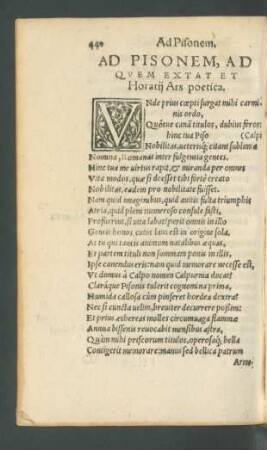 440 Ad Pisonem.
AD PISONEM, AD
QVEM EXTAT ET
Horatij Ars poetica.
VNde prius cœpti surgat mihi carmi-
nis ordo,
Quósue canā titulos, dubius feror:
hinc tua Piso (Calpi
Nobilitas, ueterisq; citant sublimia
Nomina, Romanas inter fulgentia gentes.
Hinc tua me uirtus rapit, & miranda per omnes
Vita modos, quæ si deesset tibi fortè creato
Nobilitas, eadem pro nobilitate fuisset.
Nam quid imaginibus, quid auitis fulta triumphis
Atria, quid pleni numeroso consule fasti,
Profuerint, si uita labat? perit omnis in illo
Gentis honos, cuius laus est in origine sola.
At tu qui tantis animum natalibus æquas,
Et partem tituli non summam ponis in illis,
Ipse canendus eris: nam quid memorare necesse est,
Vt domus à Calpo nomen Calpurnia ducat
Claráque Pisonis tulerit cognomina prima,
Humida callosa cùm pinseret hordea dextra?
Nec si cuncta uelim, breuiter decurrere possim:
Et prius æthereas molles circumuaga flammæ
Annua bissenis reuocabit mensibus astra,
Quàm mihi priscorum titulos, operosaq; bella
Contigerit memorare: manus sed bellica patrum
Arma-